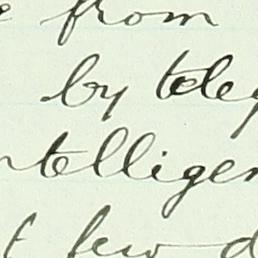 from
by teleg
ntelligen
few d